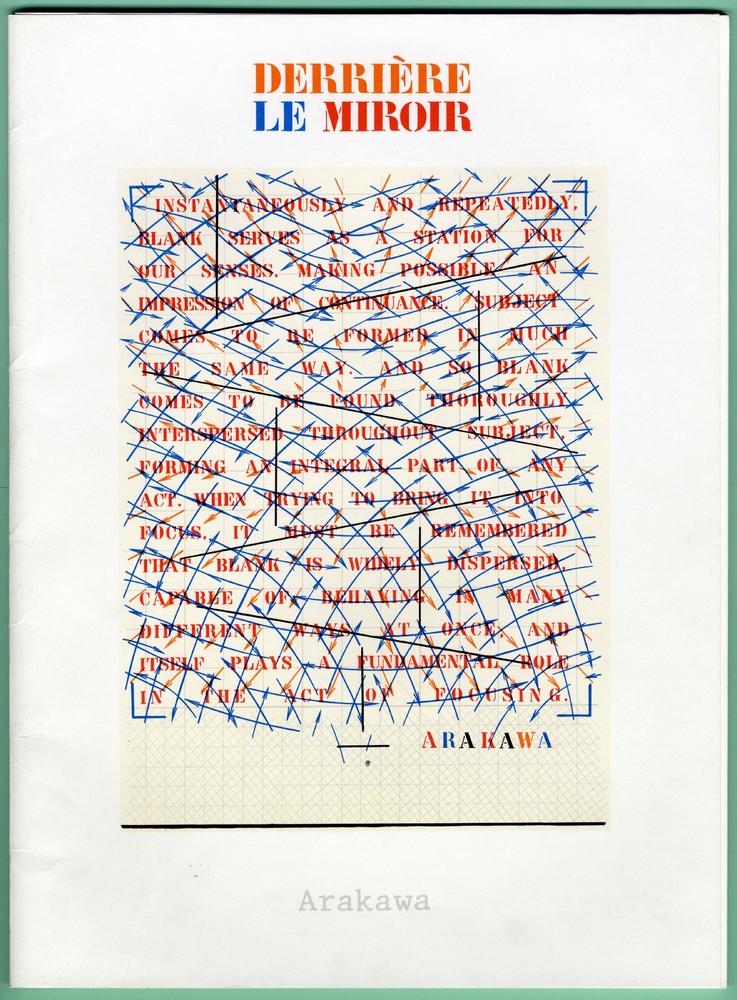 DERRIÈRE
LE MIROIR
INSTANTANEOUSLY AND REPEATEDLY,
BLANK SERVES AS A STATION FOR
OUR SENSES. MAKING POSSIBLE AN
IMPRESSION OF CONTINUANCE. SUBJECT
COMES TO BE FORMED IN MUCH
THE SAME WAY. AND SO BLANK
COMES TO BE FOUND THOROUGHLY
INTERSPERSED THROUGHOUT SUBJECT,
FORMING AN INTEGRAL PART OF ANY
ACT. WHEN TRYING TO BRING IT INTO
FOCUS, IT MUST BE REMEMBERED
THAT BLANK IS WIDELY DISPERSED,
CAPABLE OF BEHAVING IN MANY
DIFFERENT WAYS AT ONCE; AND
ITSELF PLAYS A FUNDAMENTAL ROLE
IN THE ACT OF FOCUSING.
ARAKAWA
Arakawa